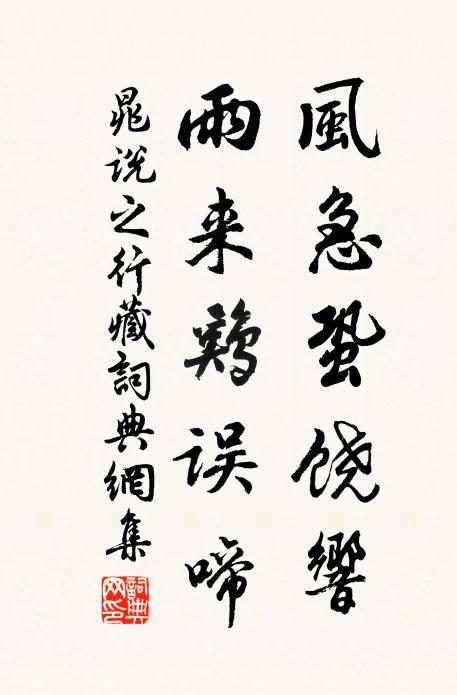 風急蛩饶響
雨来鷄误啼
晁说之行藏詞典網集
詞典网印